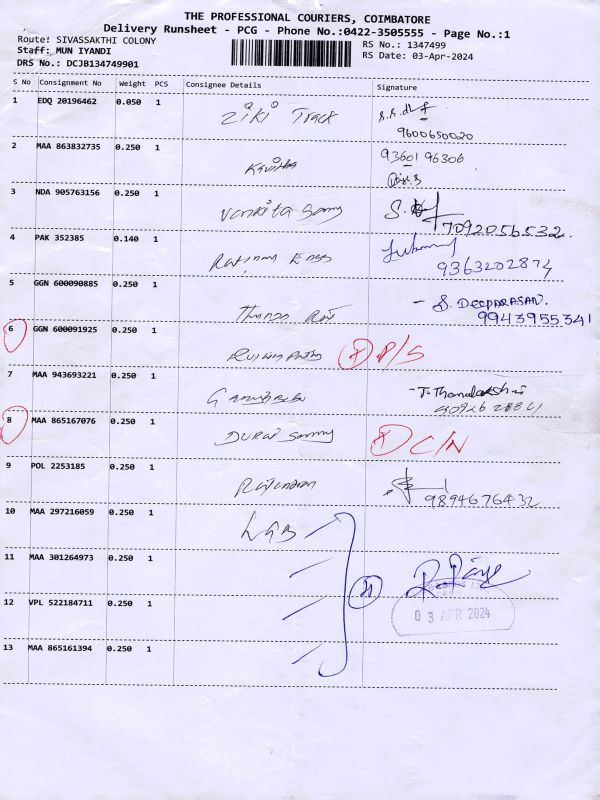 THE PROFESSIONAL COURIERS, COIMBATORE
Delivery Runsheet - PCG - Phone No.:0422-3505555 - Page No.:1
Route: SIVASSAKTHI COLONY
RS No.: 1347499
Staff: MUN IYANDI
RS Date: 03-Apr-2024
DRS No.: DCJB134749901
S No Consignment No Weight PCS Consignee Details Signature
1 EDQ 20196462 0.050 1 Track
9600650020
2 MAA 863832735 0.250 1 Kavitha 93601 96306
3 NDA 905763156 0.250 1 Samy
7092056532.
4 PAK 352385 0.140 1
9363202874
5 GGN 600090885 0.250 1 - S. DEEPPRASAD.
9943955341
6 GGN 600091925 0.250 1 D P/S
7 MAA 943693221 0.250 1
8 MAA 865167076 0.250 1 DURAI Samy D C/N
9 POL 2253185 0.250 1 Rajendran
9894676432
10 MAA 297216059 0.250 1 LGB
11 MAA 301264973 0.250 1
12 VPL 522184711 0.250 1
03 APR 2024
13 MAA 865161394 0.250 1